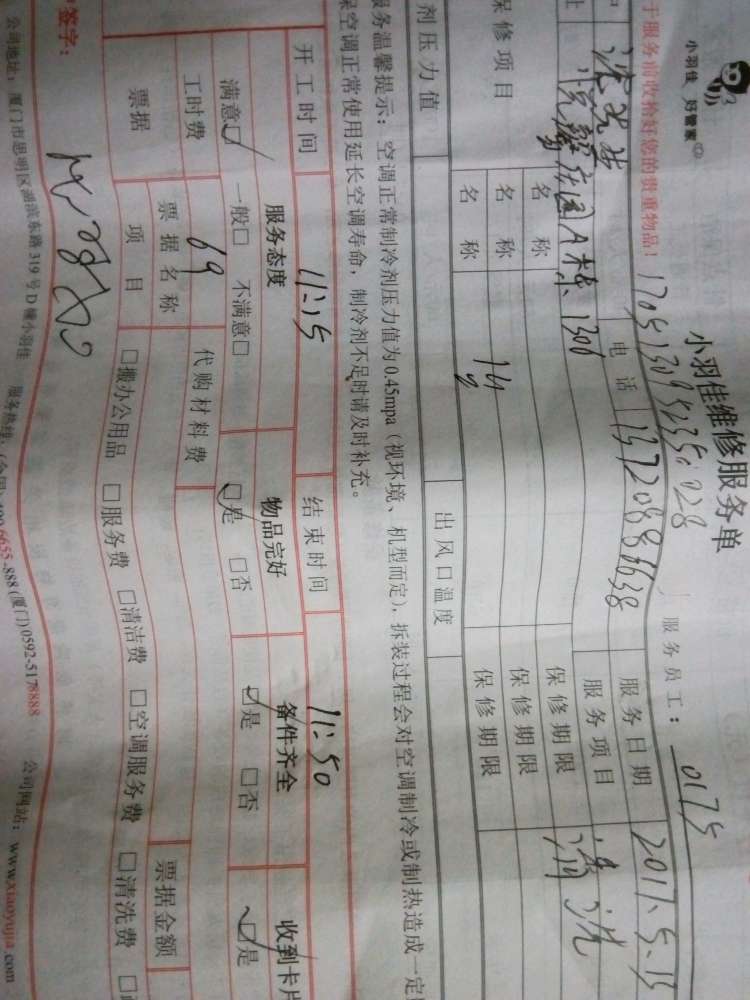 小羽佳 好管家
小羽佳维修服务单
170513095235028
服务员工： 0175
于服务前收拾好您的贵重物品！
电话 13720888638 服务日期 2017.5.13
A栋1306 服务项目 清洗
名称 保修期限
保修项目 名称 保修期限
名称 保修期限
剂压力值 出风口温度
服务温馨提示：空调正常制冷剂压力值为0.45mpa（视环境、机型而定），拆装过程会对空调制冷或制热造成一定
保空调正常使用延长空调寿命，制冷剂不足时请及时补充。
开工时间 11:15 结束时间 11:50
服务态度 物品完好 备件齐全 收到卡片
满意☑ 一般□ 不满意□ ☑是 □否 ☑是 □否 ☑是
工时费 69 代购材料费
票据 票据名称 票据金额
项目 □搬办公用品 □服务费 □清洁费 □空调服务费 □清洗费
签字：
公司地址：厦门市思明区湖滨东路319号D幢小羽佳 服务热线： -888(厦门)0592-5178888 公司网站：www.xiaoyujia.com